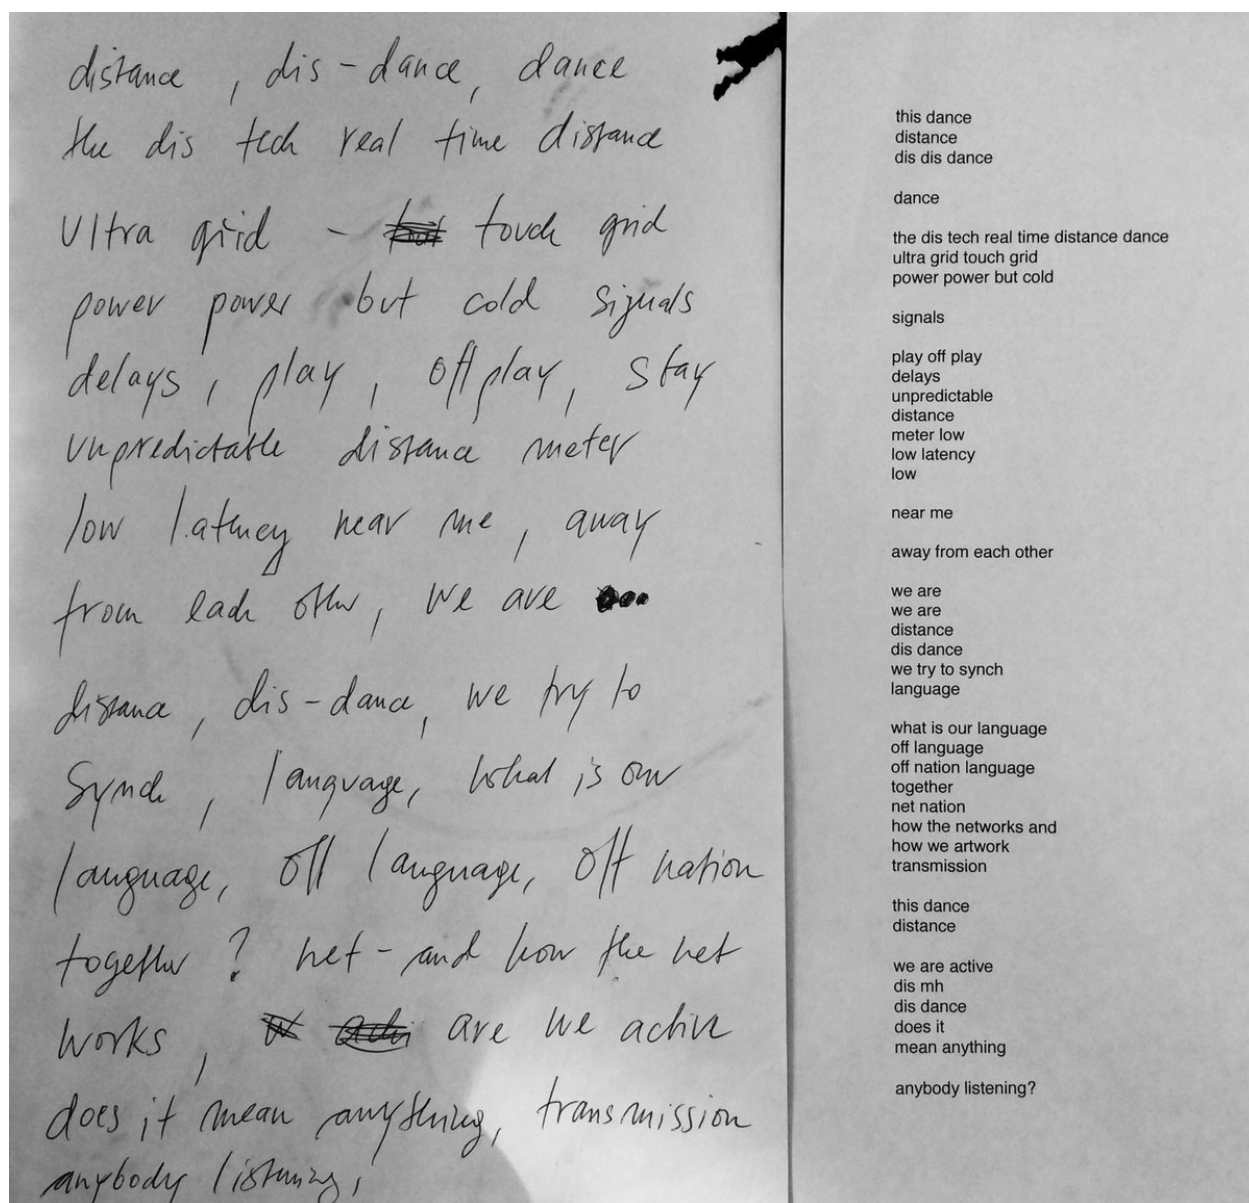 distance, dis-dance, dance
the dis tech real time distance
Ultra grid - touch grid
power power but cold signals
delays, play, off play, stay
unpredictable distance meter
low latency near me, away
from each other, we are ...
distance, dis-dance, we try to
Synch, language, what is our
language, off language, off nation
together? net-and how the net
works, are we active
does it mean anything, transmission
anybody listening,
this dance
distance
dis dis dance
dance
the dis tech real time distance dance
ultra grid touch grid
power power but cold
signals
play off play
delays
unpredictable
distance
meter low
low latency
low
near me
away from each other
we are
we are
distance
dis dance
we try to synch
language
what is our language
off language
off nation language
together
net nation
how the networks and
how we artwork
transmission
this dance
distance
we are active
dis mh
dis dance
does it
mean anything
anybody listening?